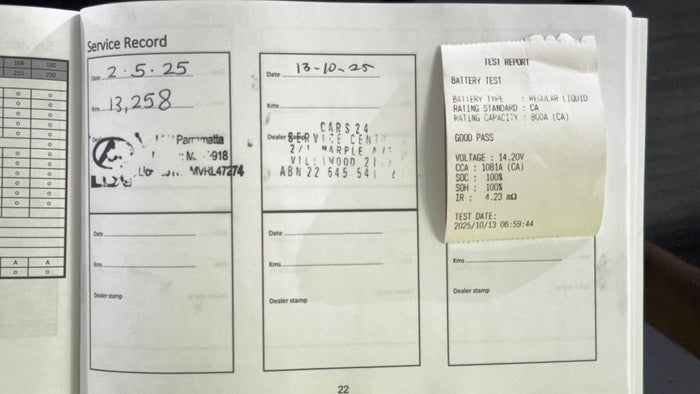 168 180
215 230
A A
Service Record
Date 2.5.25
Kms 13,258
Parramatta
MVRL47274
Date
Kms
Dealer stamp
Date 13-10-25
Kms
Dealer stamp
CARS24
SERVICE CENT
2/1 MARPLE AV
VILLAWOOD 21
ABN 22 645 541
Date
Kms
Dealer stamp
TEST REPORT
BATTERY TEST
BATTERY TYPE : REGULAR LIQUID
RATING STANDARD : CA
RATING CAPACITY : 800A (CA)
GOOD PASS
VOLTAGE : 14.20V
CCA : 1081A (CA)
SOC : 100%
SOH : 100%
IR : 4.23 mΩ
TEST DATE:
2025/10/13 06:59:44
Kms
Dealer stamp
22